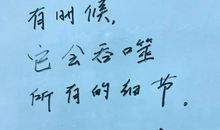 有时候,
它会吞噬
所有的细节。